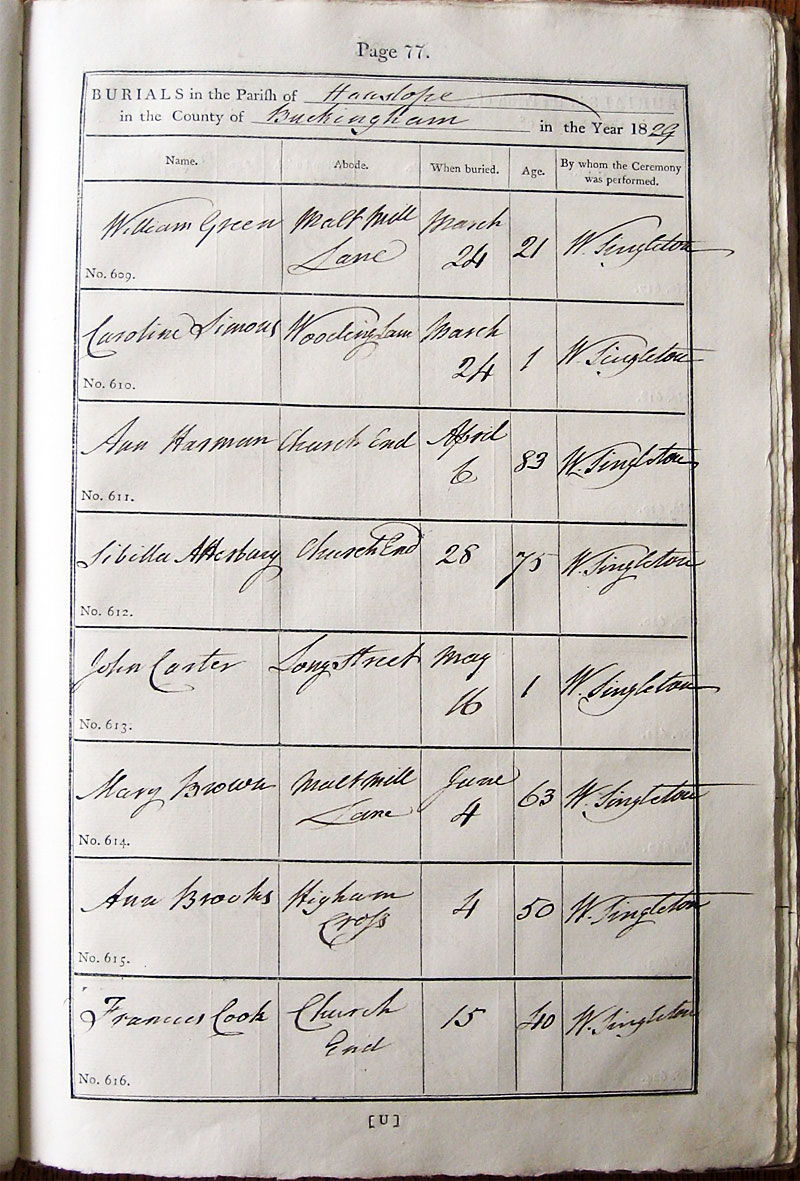 Page 77.
BURIALS in the Parish of Hanslope
in the County of Buckingham in the Year 1829
Name. Abode. When buried. Age. By whom the Ceremony was performed.
William Green Malt Mill March
Lane 24 21 W. Singleton
No. 609.
Caroline Simons March
24 1 W. Singleton
No. 610.
Ann Harman Church End April
6 83 W. Singleton
No. 611.
Sibella Atterbury Church End 28 75 W. Singleton
No. 612.
John Carter Long Street May
16 1 W. Singleton
No. 613.
Mary Brown Malt Mill June
Lane 4 63 W. Singleton
No. 614.
Ann Brooks Higham
Cross 4 50 W. Singleton
No. 615.
Frances Cook Church 15 40 W. Singleton
End
No. 616.
[U]